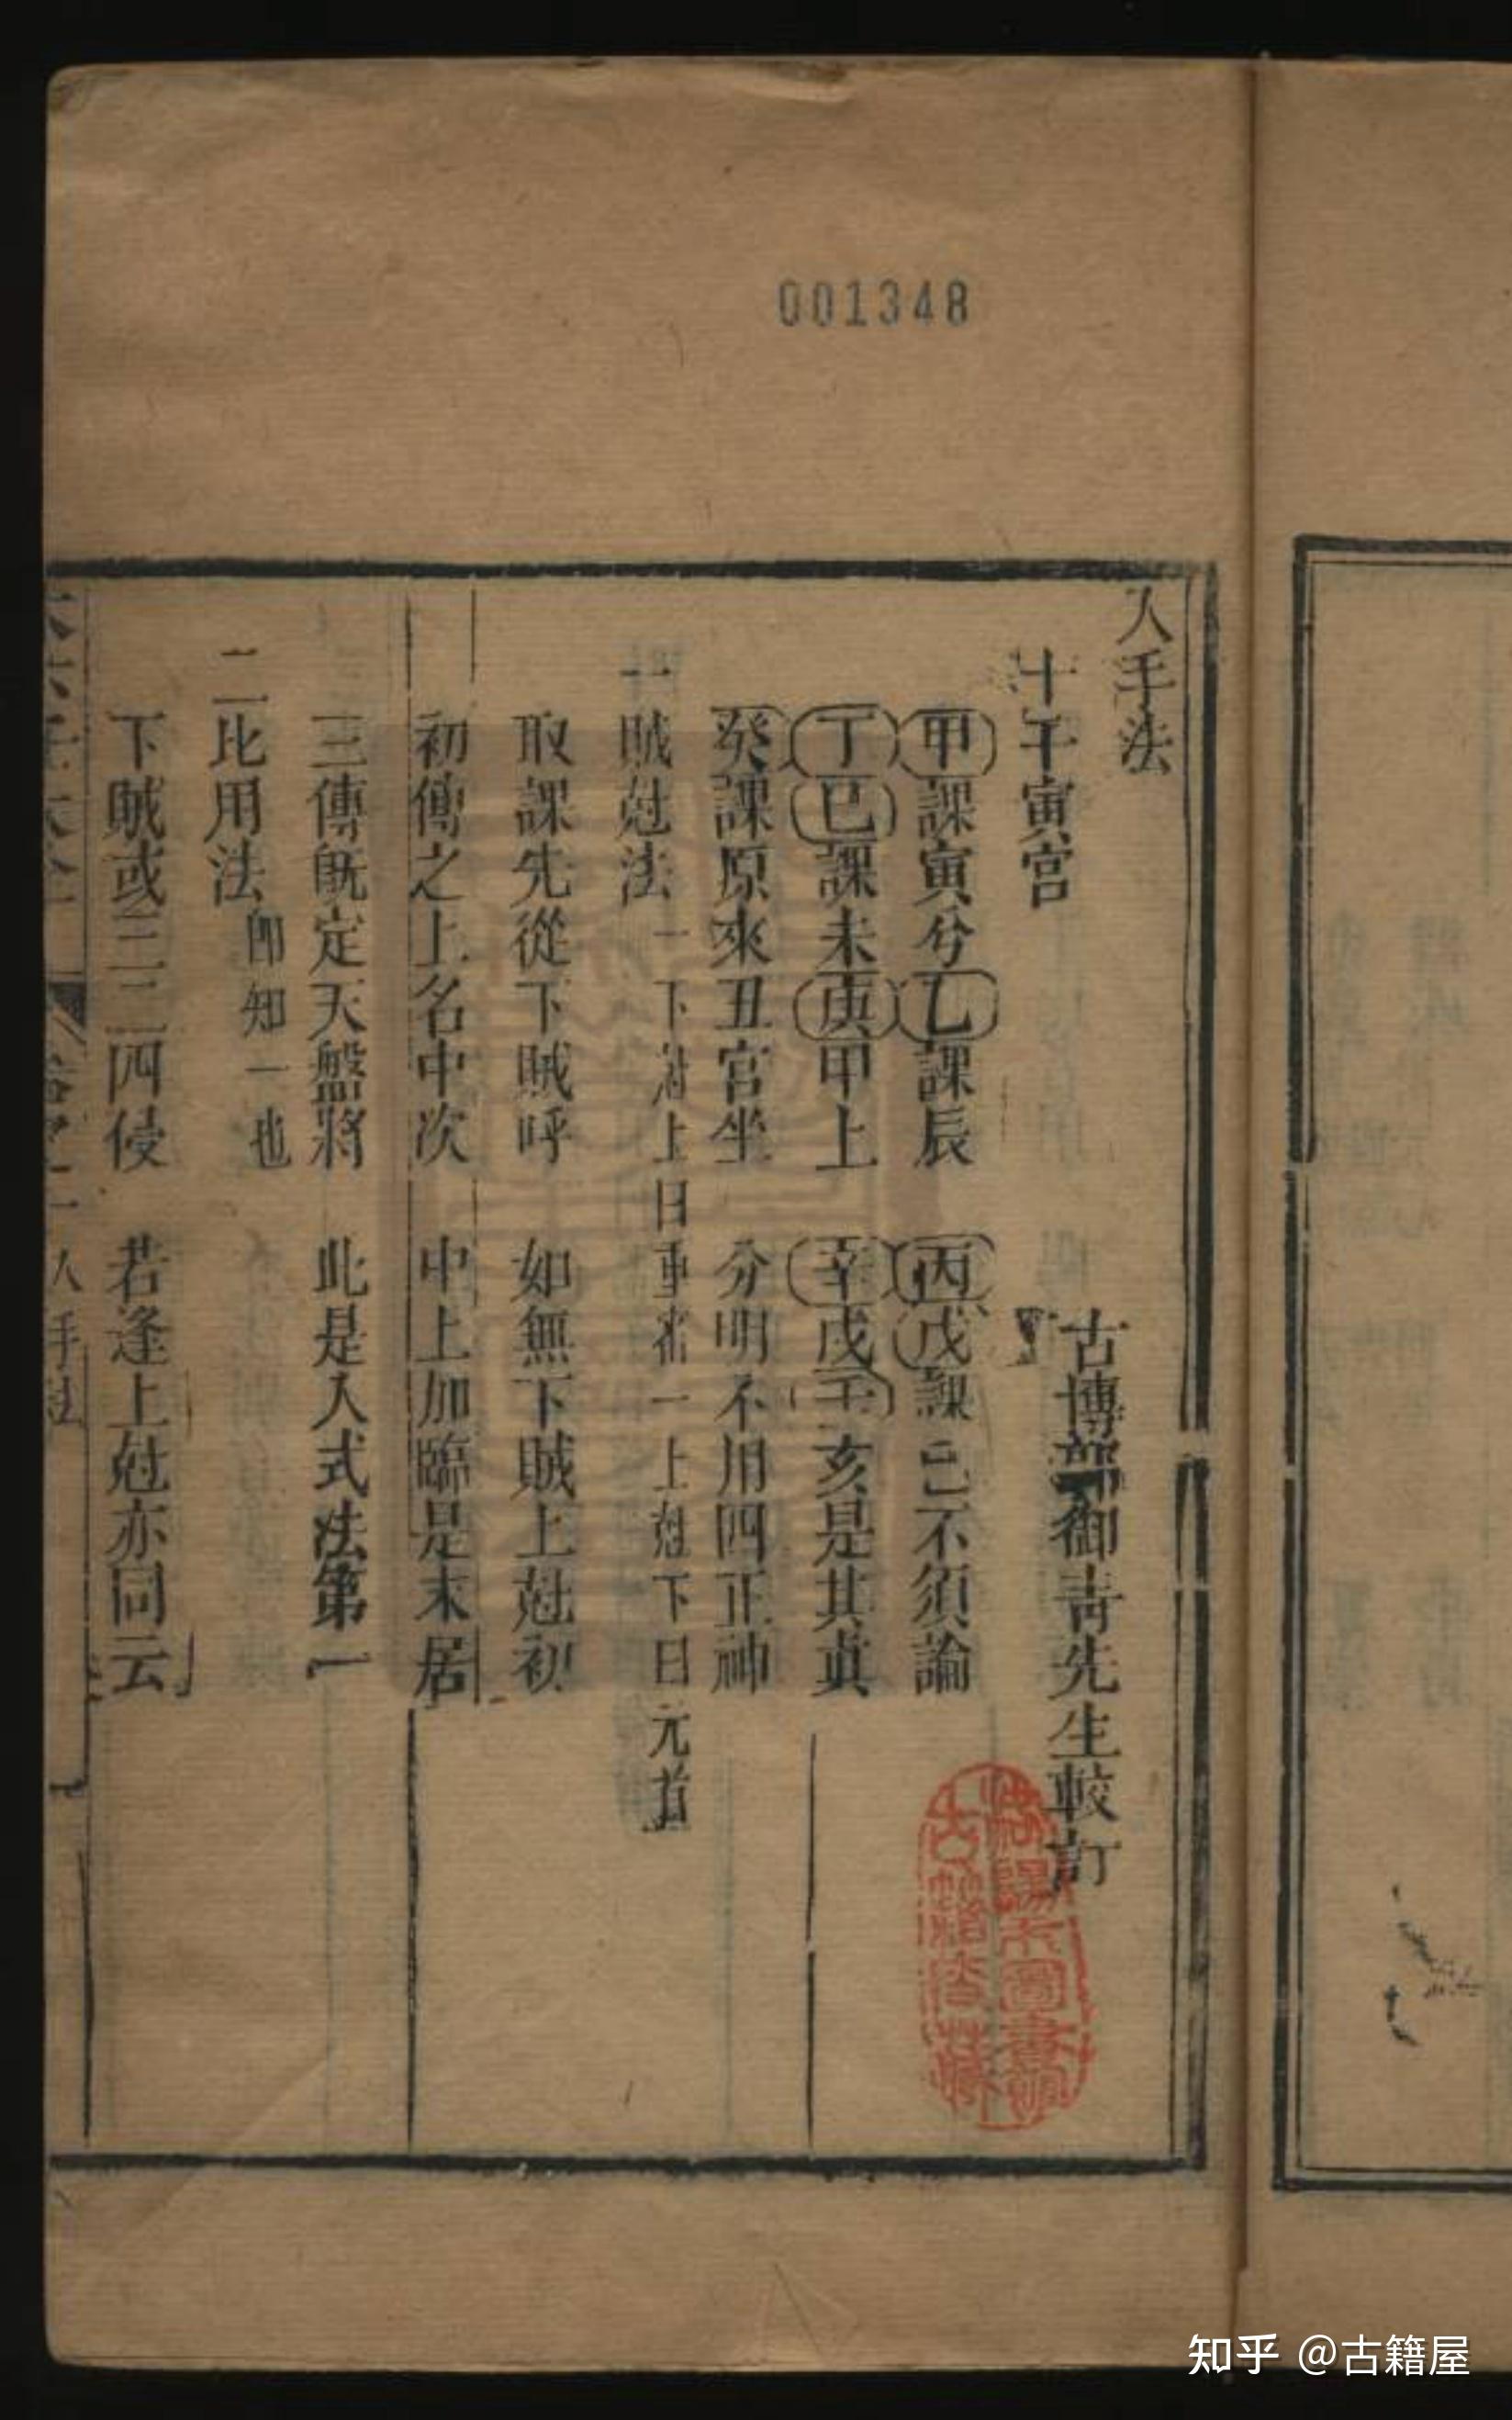 001348
入手法
古博郭御青先生較訂
十干寅宫
甲課寅兮乙課辰 丙戊課巳不須論
丁巳課未庚甲上 辛戌壬亥是其眞
癸課原來丑宫坐 分明不用四正神
一賊尅法 一下尅上曰重審一上尅下曰元首
取課先從下賊呼 如無下賊上尅初
初傳之上名中次 中上加臨是末居
三傳既定天盤將 此是入式法第一
二比用法 即知一也
下賊或三二四侵 若逢上尅亦同云
大六壬大全 卷之一 入手法
圖書館
古籍
藏
知乎 @古籍屋